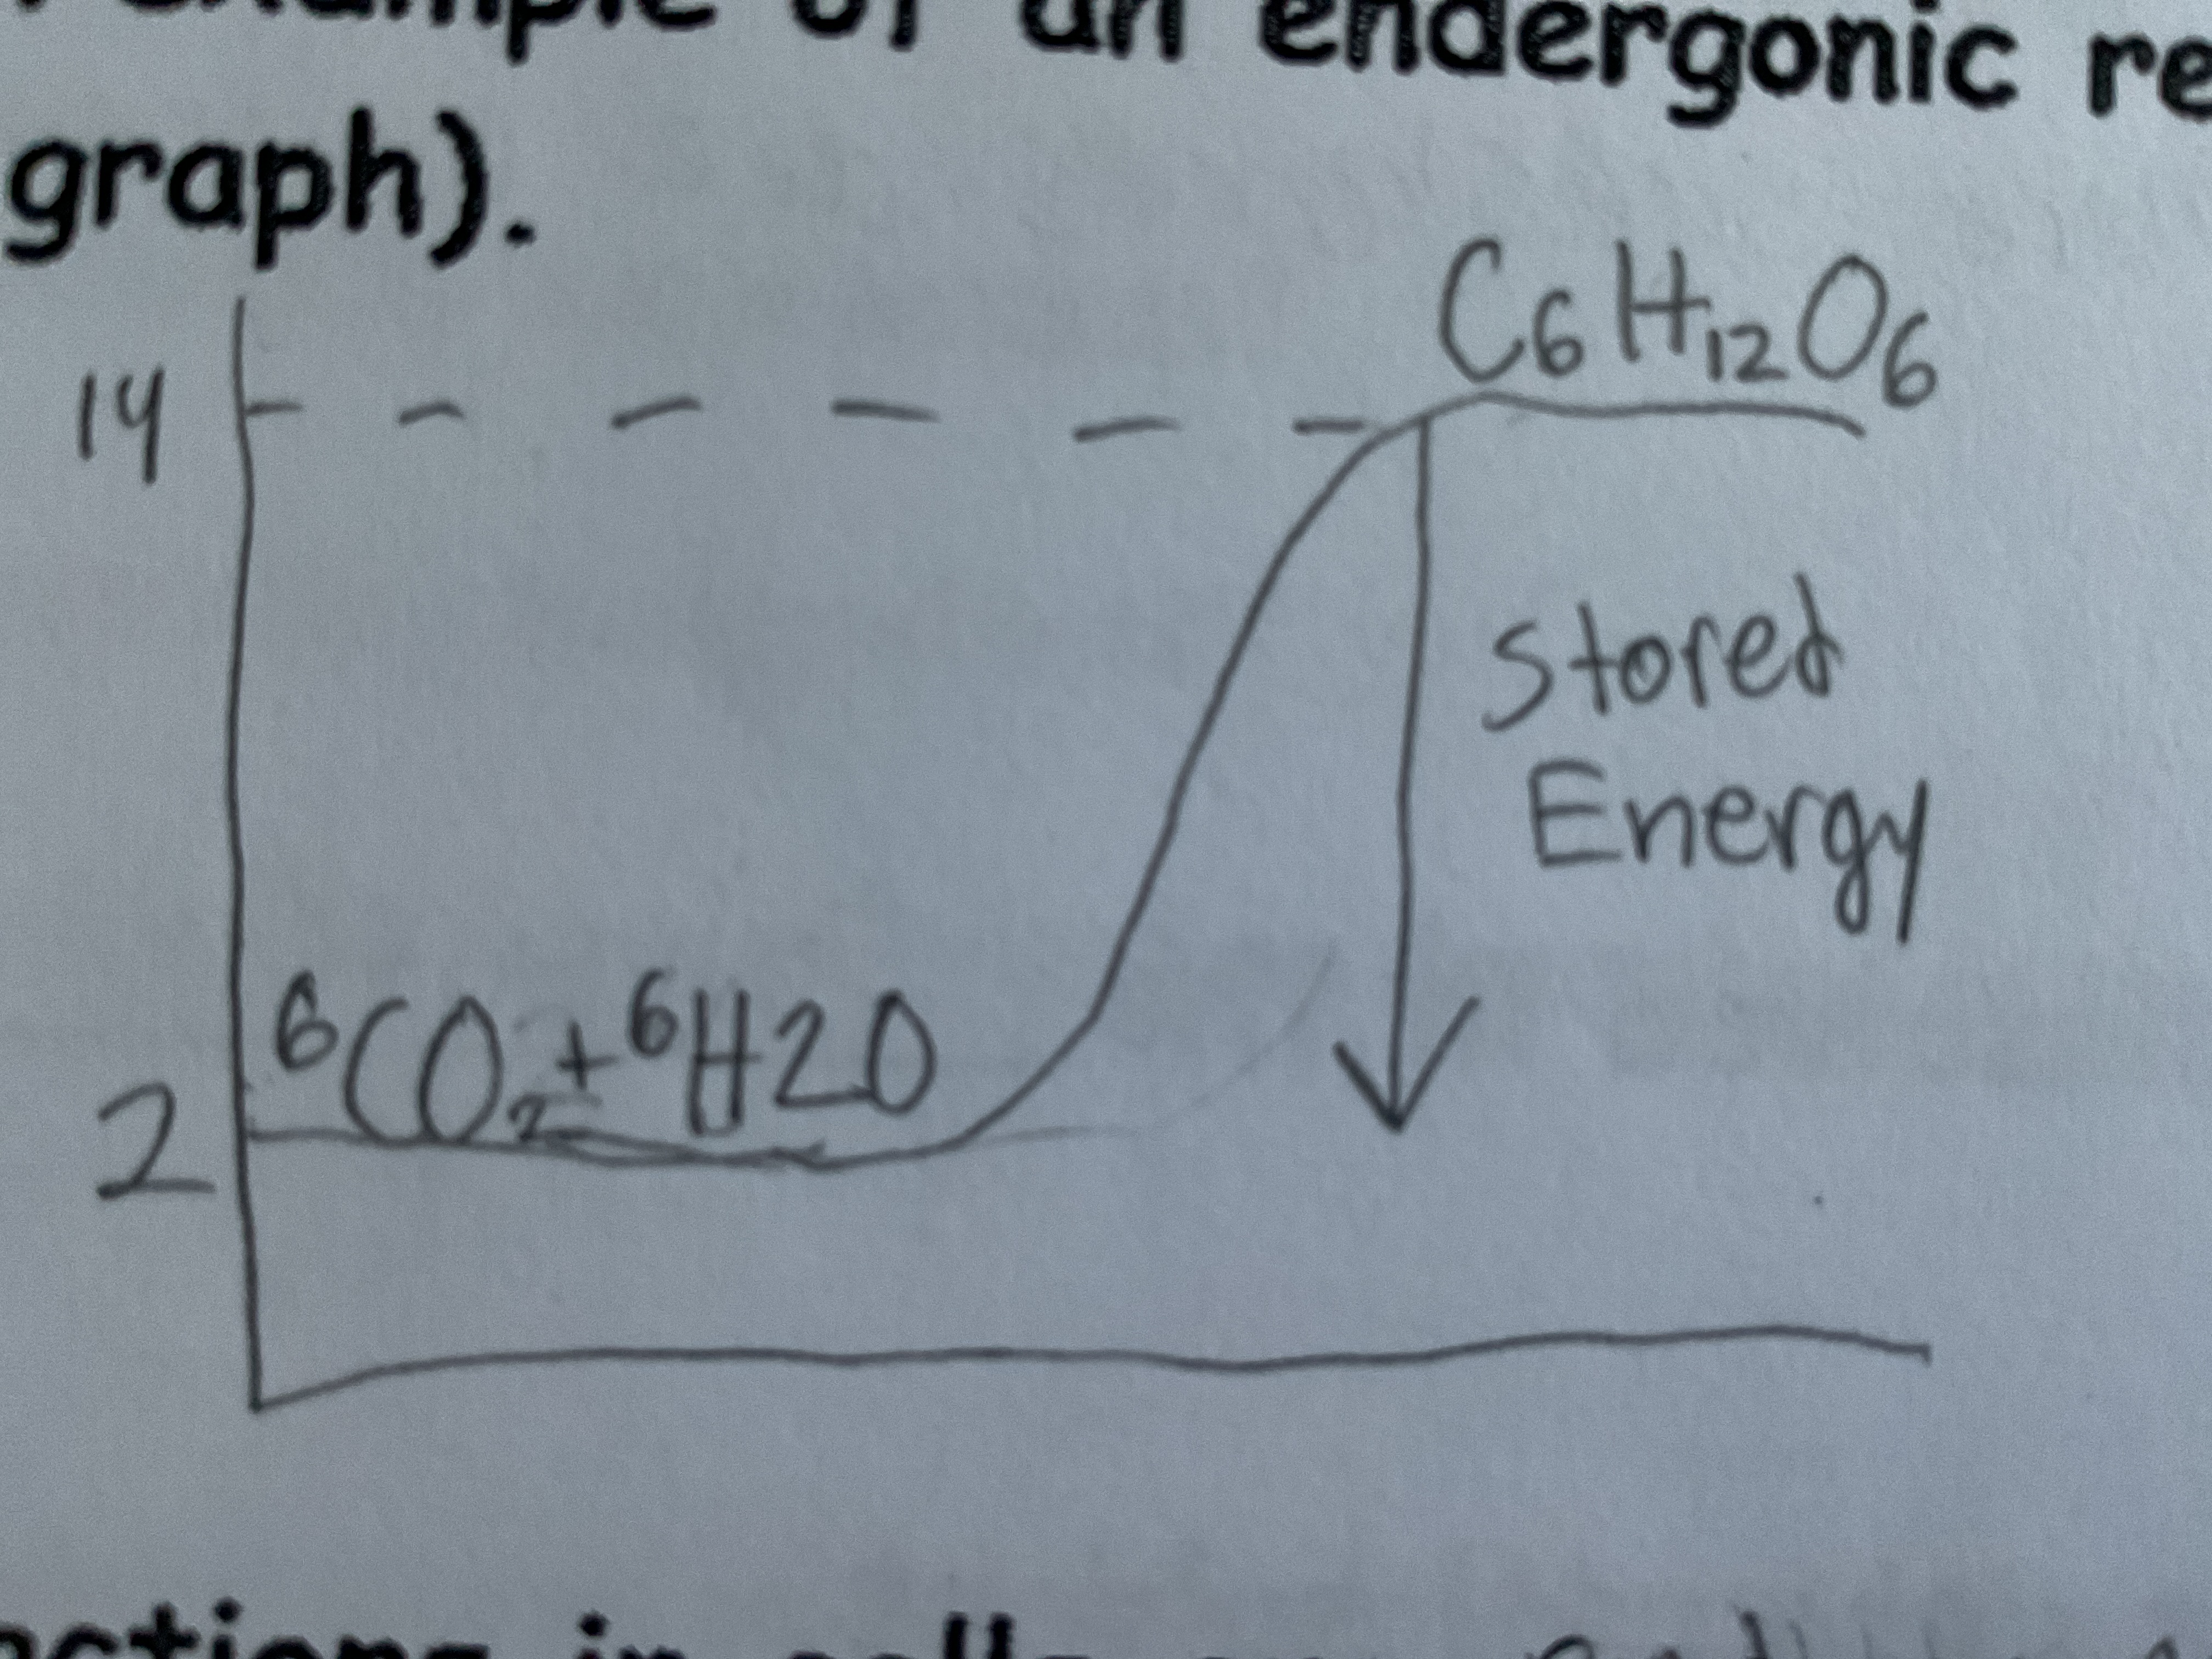 example of an endergonic re
graph).
C₆H₁₂O₆
14
Stored
Energy
6CO₂+6H2O
2
in cells